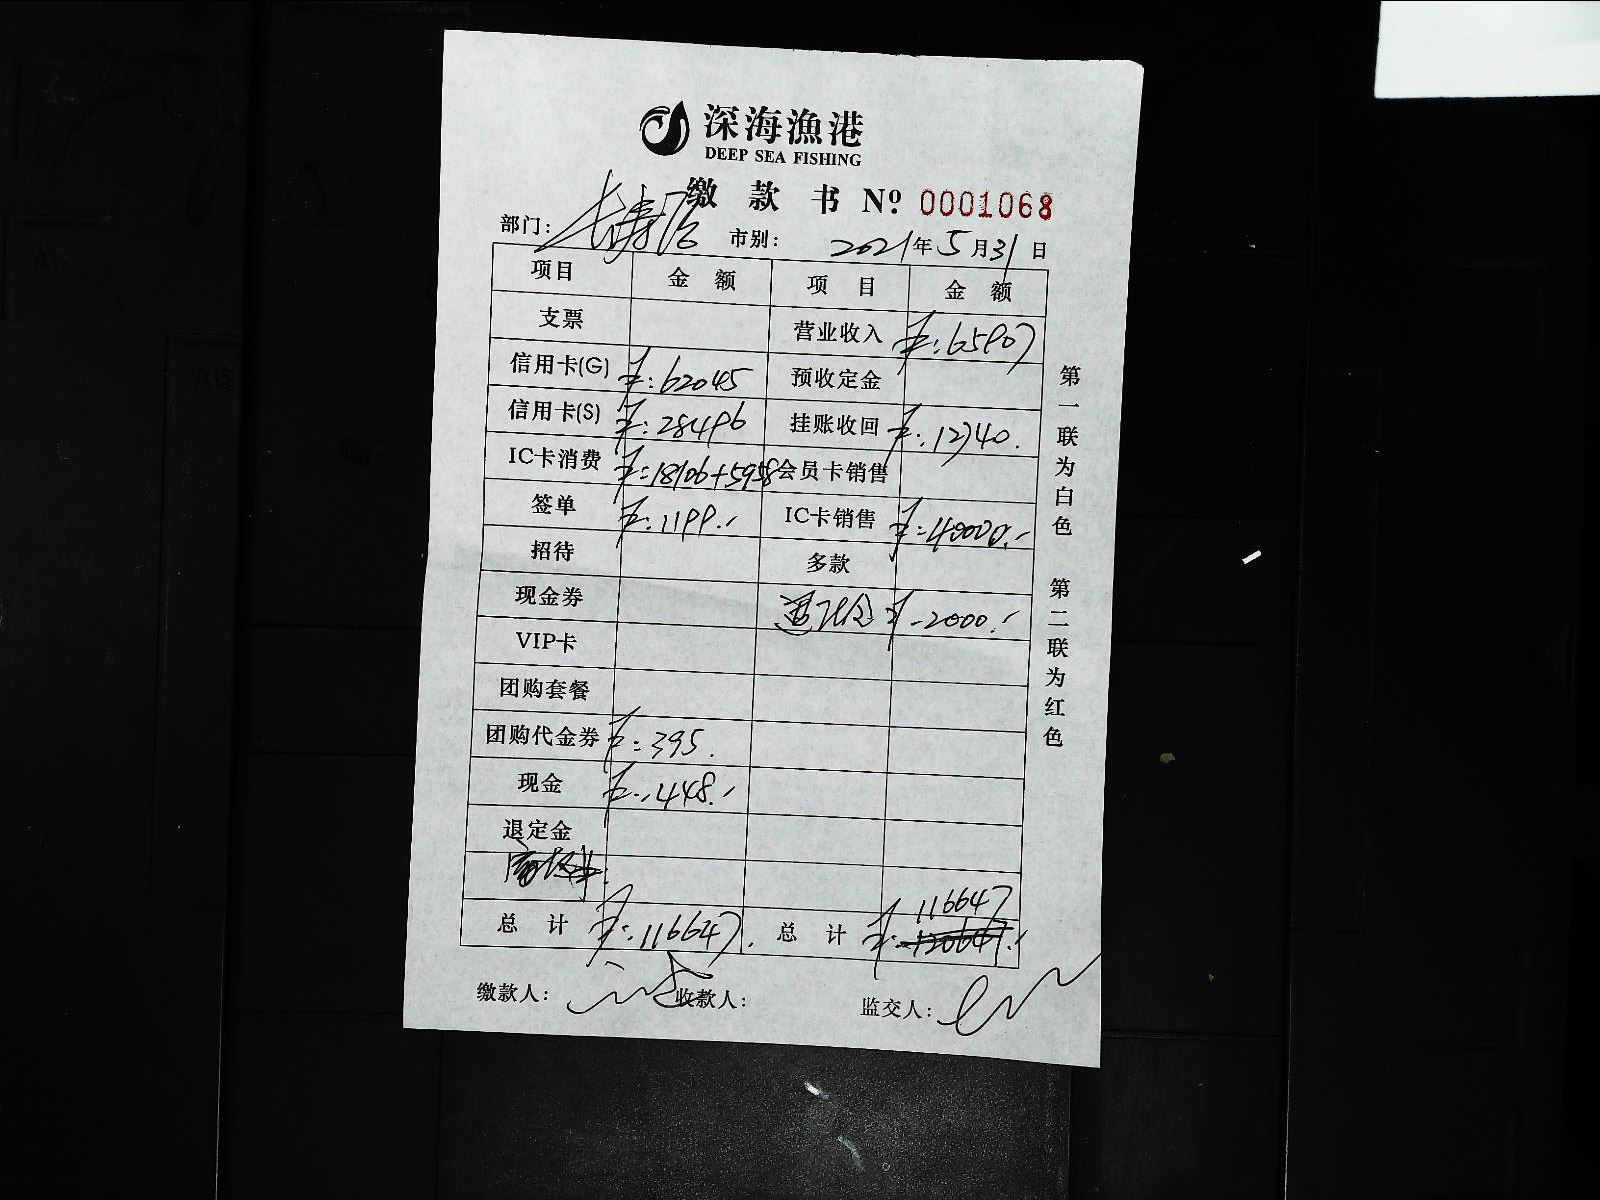 深海漁港
DEEP SEA FISHING
缴 款 书 Nº 0001068
部门: 长寿店 市别: 2021年5月31日
项目 金 额 项 目 金 额
支票 营业收入 ¥:65907
信用卡(G) ¥:62045 预收定金
信用卡(S) ¥:28496 挂账收回 ¥:12740.
IC卡消费 ¥:18106+5958 会员卡销售
签单 ¥:1199.- IC卡销售 ¥:40000.-
招待 多款
现金券 退订金 ¥-2000.-
VIP卡
团购套餐
团购代金券 ¥:395.
现金 ¥:448.-
退定金
总 计 ¥:116647. 总 计 ¥: 116647
缴款人: 收款人: 监交人:
第一联为白色 第二联为红色